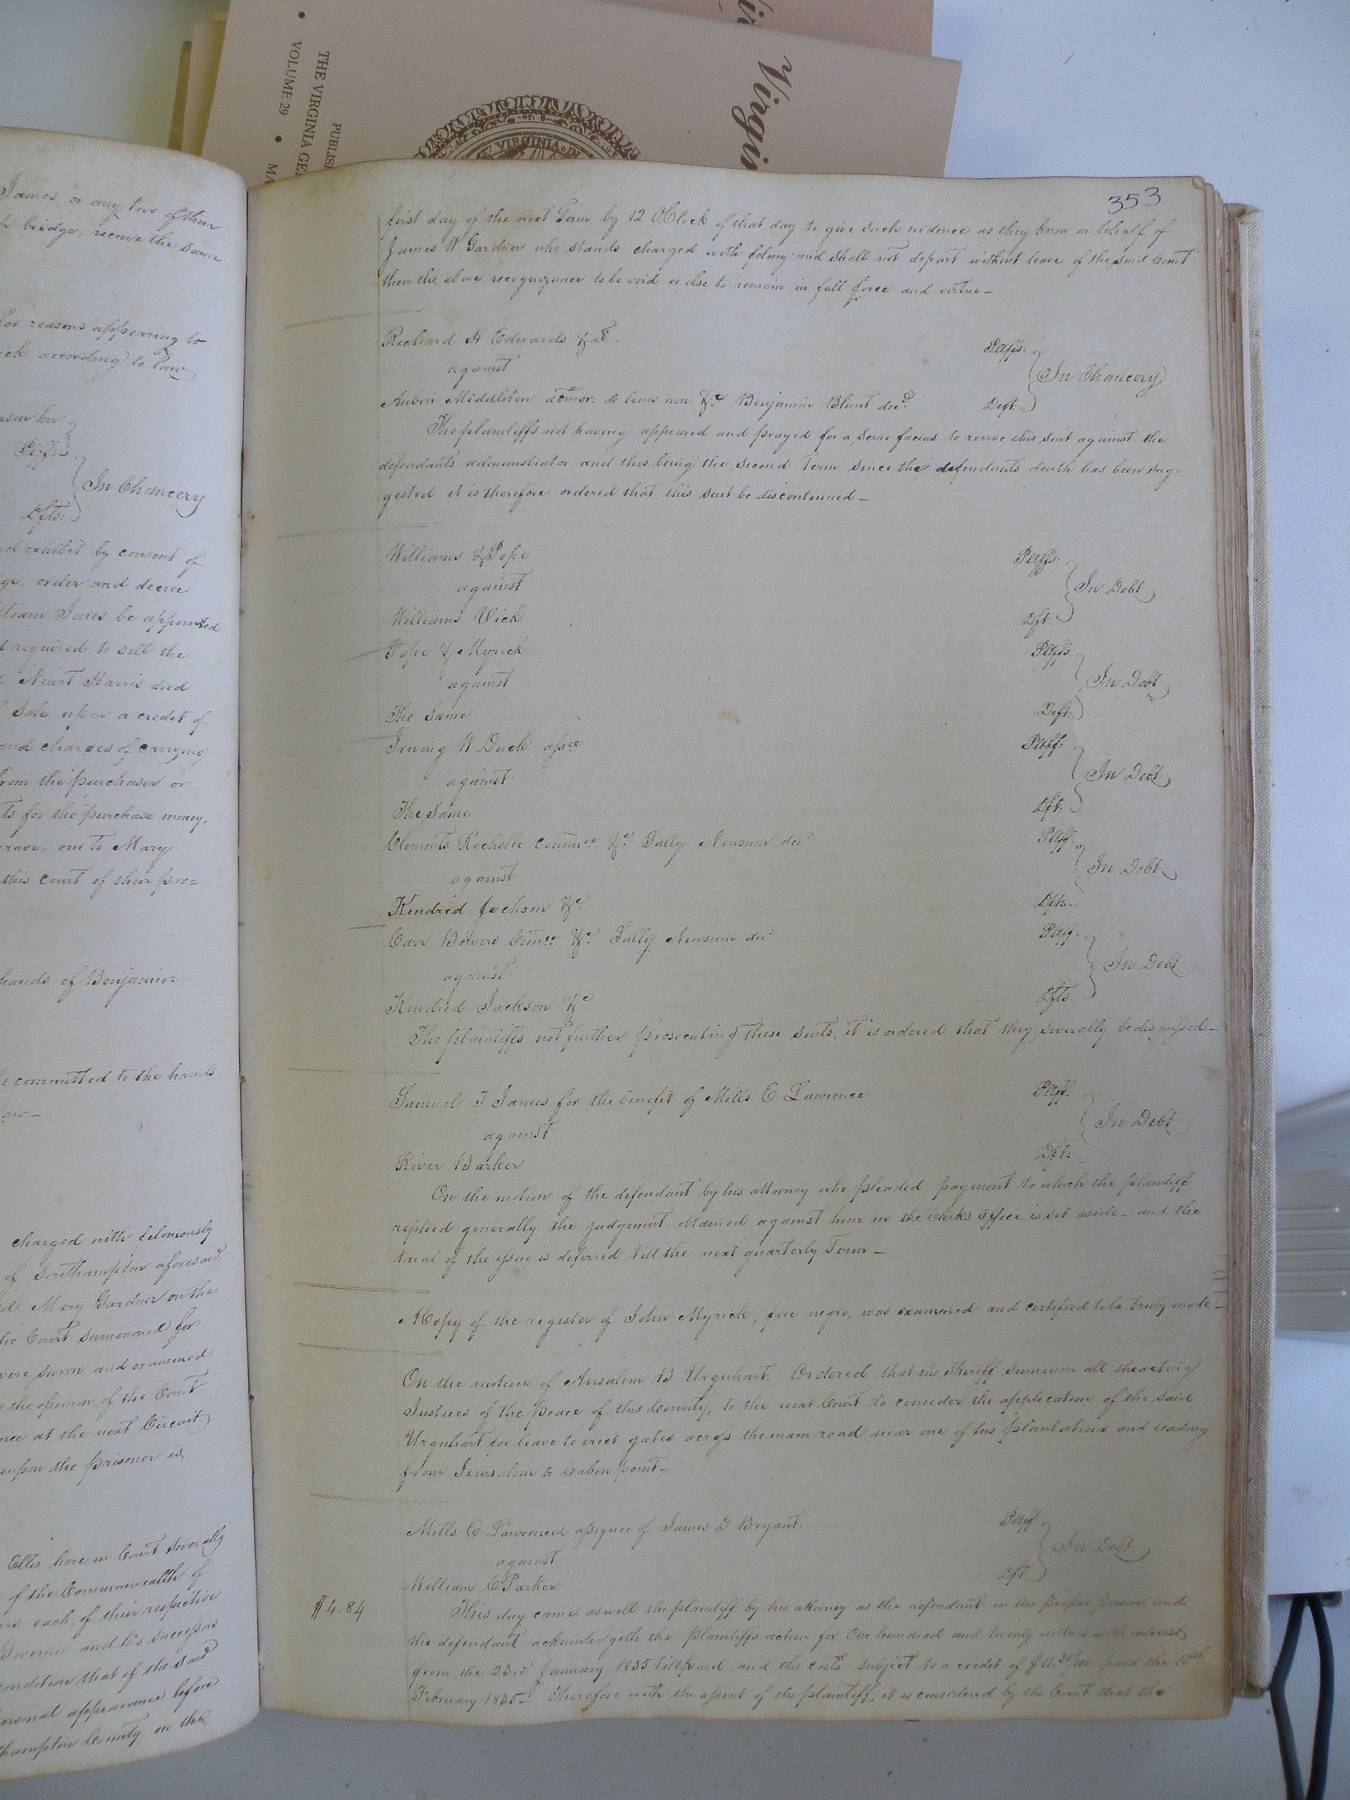 Virgin
PUBLIS
THE VIRGINIA GE
• VOLUME 29 • MA
VIRGINIA
James, or any two of them
bridge, receive the same
for reasons appearing to
according to law
Plffs
In Chancery
Dfts:
exhibit by consent of
order and decree
William Jones be appointed
required to sell the
Newit Harris died
sale upon a credit of
and charges of carrying
from the purchaser or
for the purchase money,
one to Mary
this court of their pro=
hands of Benjamin
committed to the hands
law—
charged with feloniously
of Southampton aforesaid
Mary Gardner on the
Court summoned for
were sworn and examined
the opinion of the Court
at the next Circuit
upon the prisoner is
Ellis here in Court severally
of the Commonwealth of
each, of their respective
Governor and his successors
condition that if the said
personal appearance before
Southampton County on the
353
first day of the next Term by 12 OClock of that day to give such evidence as they know on behalf of
James W Gardner who stands charged with felony and shall not depart without leave of the said Court
then the above recognizance to be void or else to remain in full force and virtue—
Richard H Edwards &c. Plffs:
against In Chancery
Auben Middleton admor. de bonis non &c Benjamin Blunt decd. Deft:
The plaintiffs not having appeared and prayed for a scire facias to revive this suit against the
defendants administrator and this being the second Term since the defendants death has been sug-
gested it is therefore ordered that this suit be discontinued—
Williams & Pope Plffs:
against In Debt
Williams Vick Dft:
Pope & Myrick Plffs
against In Debt
The Same Deft:
Irving W Duck assee Plff:
against In Debt
The Same Dft:
Clements Rochelle &c Sally Newsum decd Plff
against In Debt
Kindred Jackson &c Dfts.
Carr Bowers &c Sally Newsum decd Plff:
against In Debt
Kindred Jackson &c Dfts.
The plaintiffs not further prosecuting these suits, it is ordered that they severally be dismissed—
Samuel T James for the benefit of Mills E Lawrence Plff:
against In Debt
River Barker Dft:
On the motion of the defendant by his attorney who pleaded payment to which the plaintiff
replied generally the judgment obtained against him in the Clerks Office is set aside— and the
trial of the issue is deferred till the next quarterly Term—
A Copy of the register of John Myrick, free negro, was examined and certified to be truly made—
On the motion of Ansalem B Urquhart Ordered that the Sheriff summon all the acting
Justices of the peace of this County, to the next Court to consider the application of the said
Urquhart for leave to erect gates across the main road near one of his plantations and leading
from Jerusalem to Cabin point—
Mills E Lawrence assignee of James D Bryant Plff:
against In Debt
William C Parker Dft:
$4.84 This day came as well the plaintiff by his attorney as the defendant in his proper person and
the defendant acknowledgeth the plaintiffs action for One hundred and twenty dollars with interest
from the 23rd January 1835 till paid and the costs subject to a credit of paid the 10th
February 1835— Therefore with the assent of the plaintiff, it is considered by the Court that the